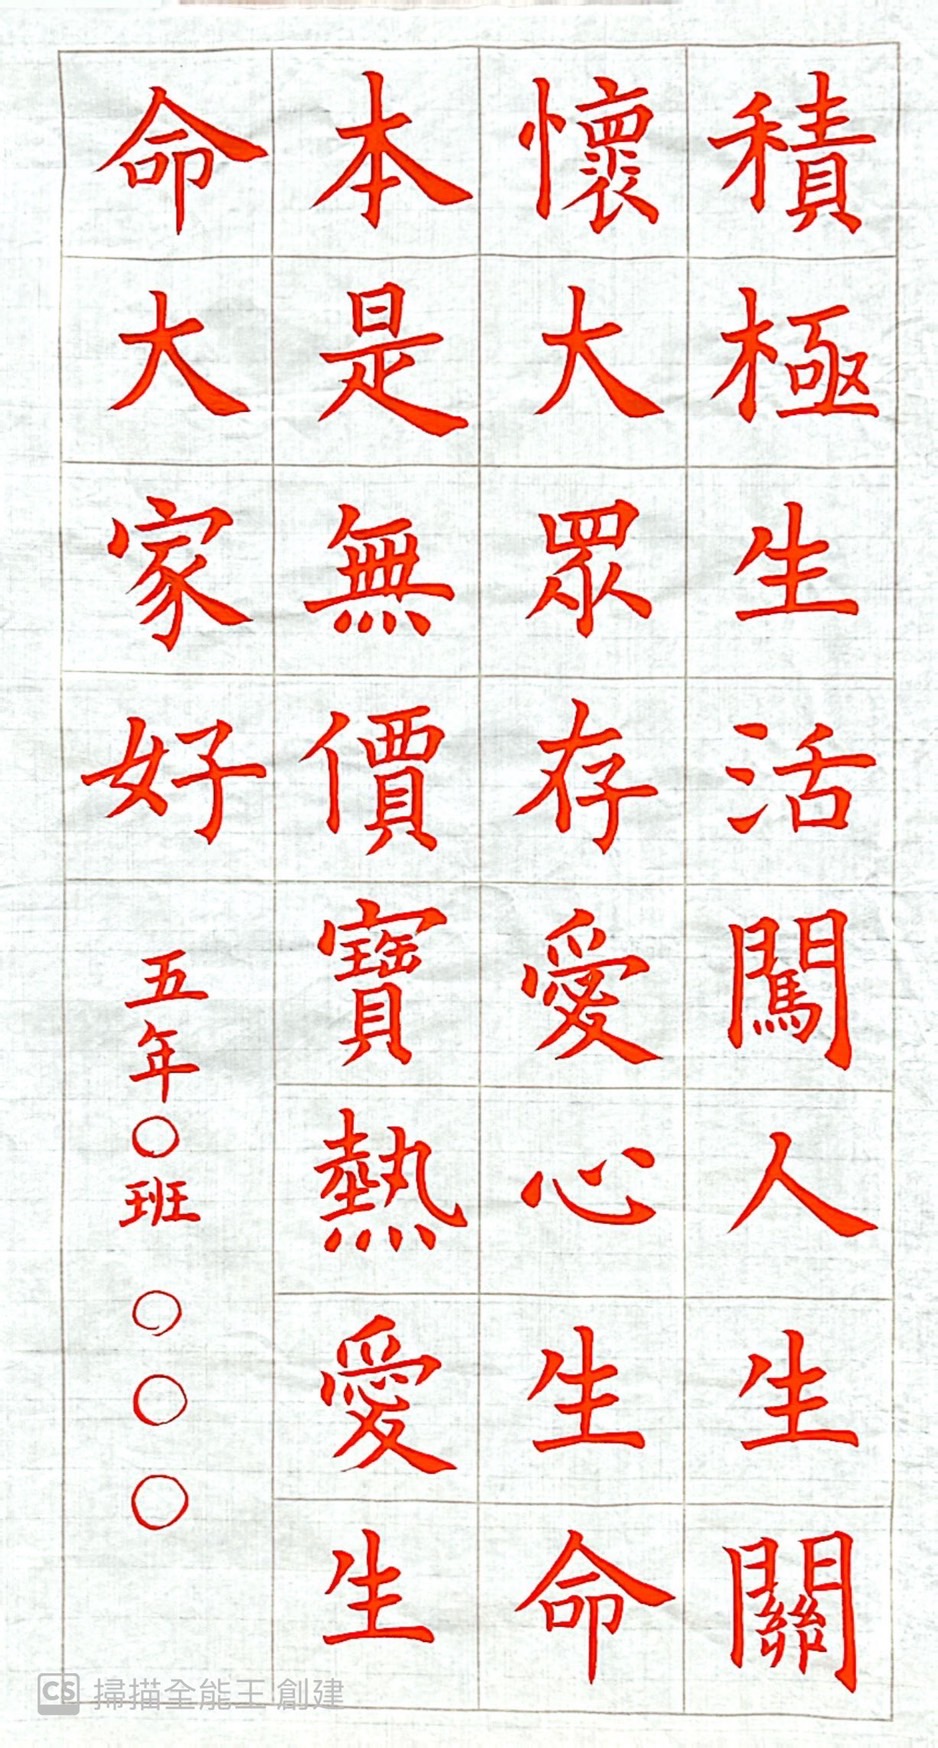 積極生活闖人生關
懷大眾存愛心生命
本是無價寶熱愛生
命大家好
五年〇班 〇〇〇
CS 掃描全能王 創建